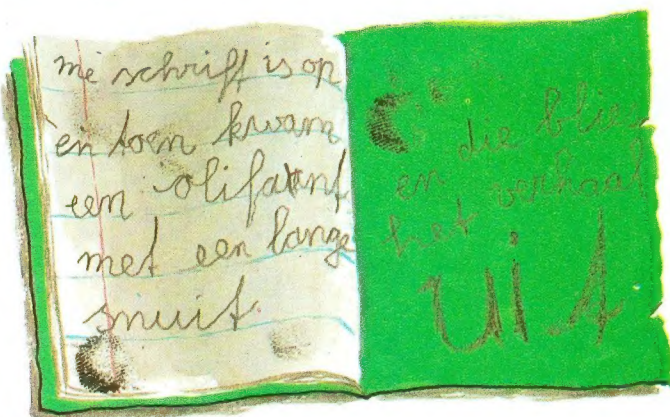 me schrift is op
en toen kwam
een olifant
met een lange
snuit.
en die blies
het verhaal
uit